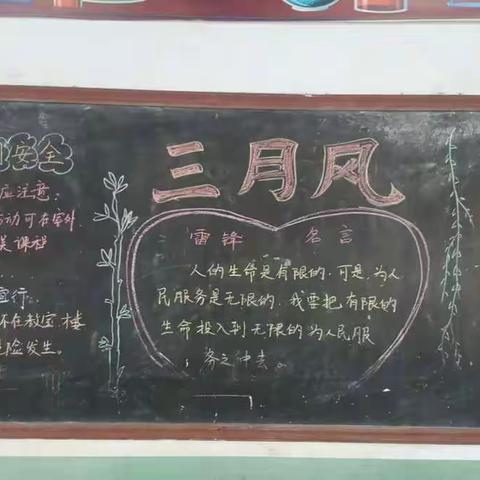 安全
应注意：
动可在室外
课程
不在教室、楼
险发生。
三月风
雷锋 名言
人的生命是有限的，可是，为人
民服务是无限的，我要把有限的
生命投入到无限的为人民服
务之中去。